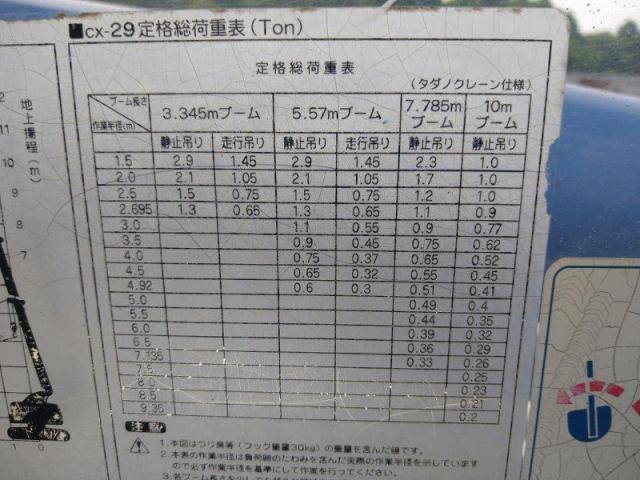 ■CX-29定格総荷重表(Ton)
定格総荷重表
(タダノクレーン仕様)
ブーム長さ 作業半径(m) 3.345mブーム 5.57mブーム 7.785mブーム 10mブーム
静止吊り 走行吊り 静止吊り 走行吊り 静止吊り 静止吊り
1.5 2.9 1.45 2.9 1.45 2.3 1.0
2.0 2.1 1.05 2.1 1.05 1.7 1.0
2.5 1.5 0.75 1.5 0.75 1.2 1.0
2.695 1.3 0.65 1.3 0.65 1.1 0.9
3.0 1.1 0.55 0.9 0.77
3.5 0.9 0.45 0.75 0.62
4.0 0.75 0.37 0.65 0.52
4.5 0.65 0.32 0.55 0.45
4.92 0.6 0.3 0.51 0.41
5.0 0.49 0.4
5.5 0.44 0.35
6.0 0.39 0.32
6.5 0.36 0.29
7.135 0.33 0.26
7.5 0.25
8.0 0.23
8.5 0.21
9.35 0.2
注意
1.本図はつり具等(フック重量30kg)の重量を含んだ値です。
2.本表の作業半径は負荷時のたわみを含んだ実際の作業半径を示しています
ので必ず作業半径を基準にして作業を行ってください。
地上揚程(m)
12
11
10
9
8
7